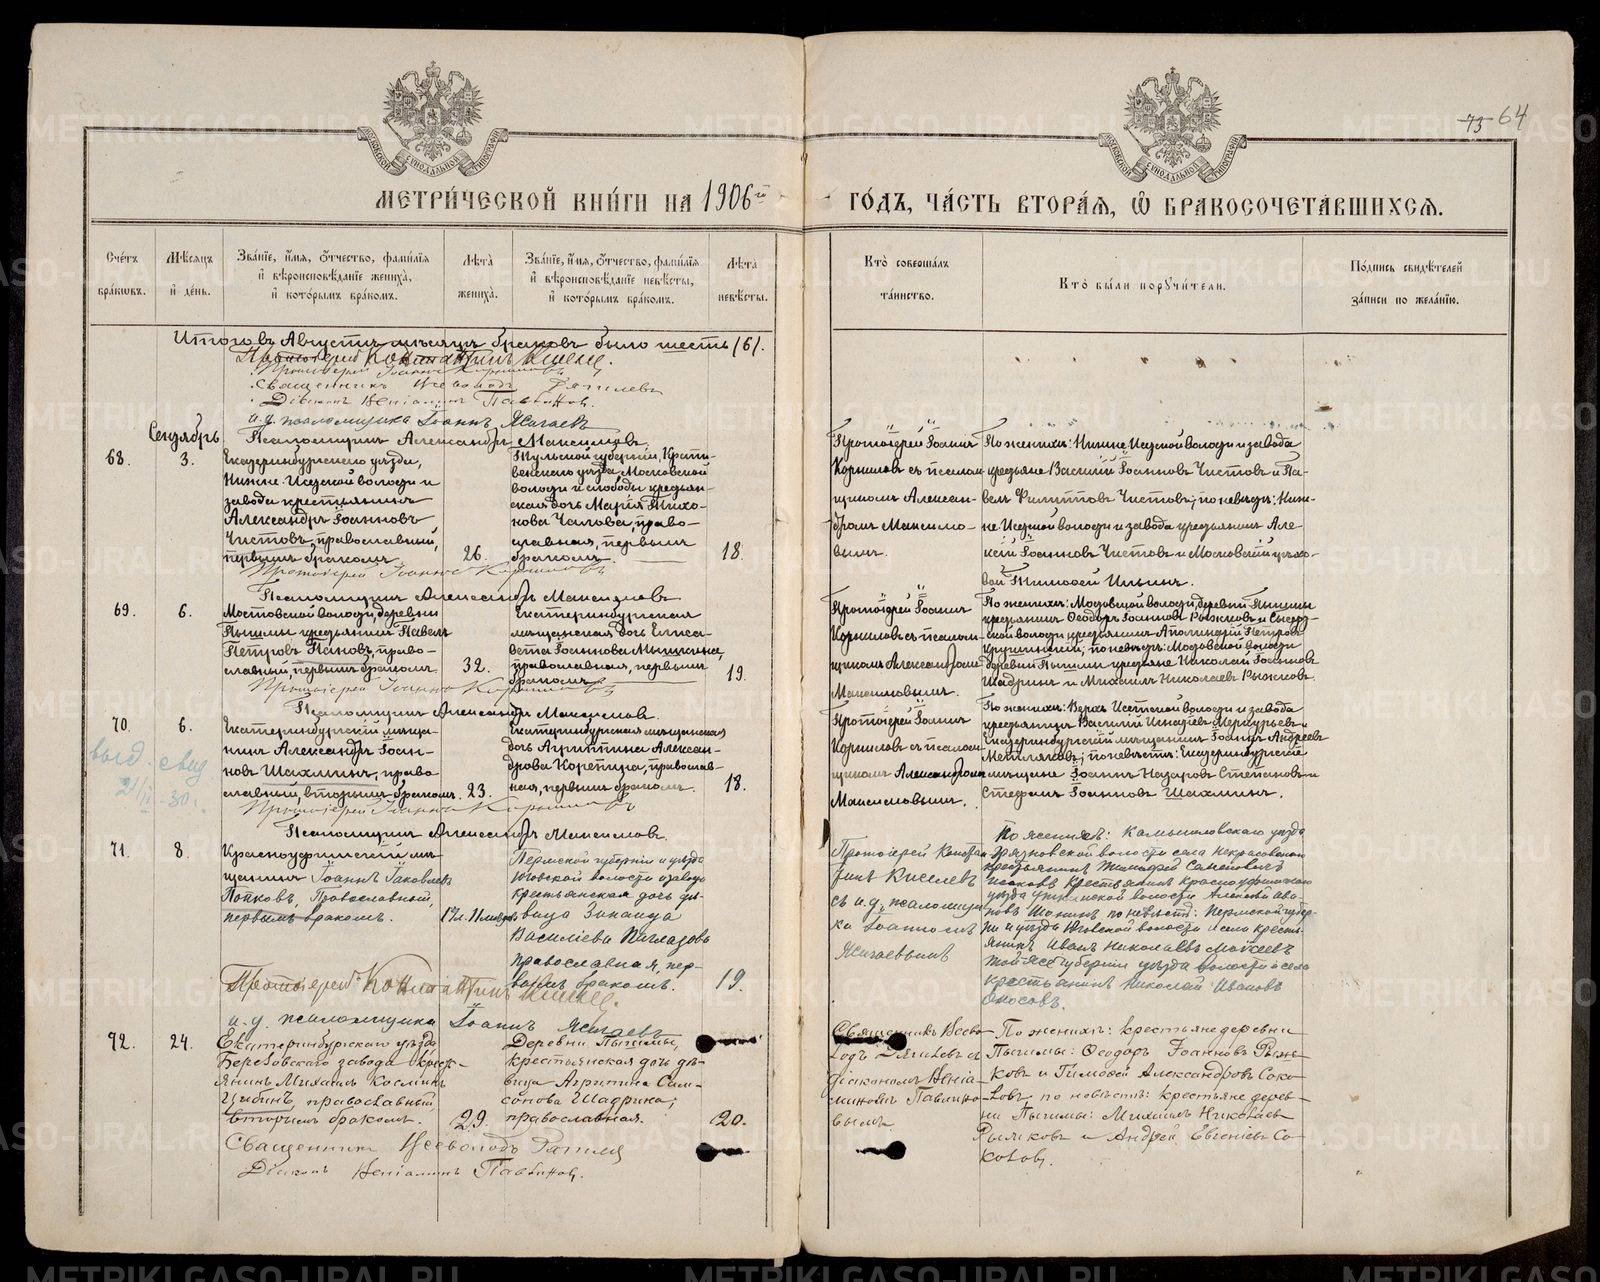 73 64
МЕТРИЧЕСКОЙ КНИГИ НА 1906й ГОДЪ, ЧАСТЬ ВТОРАЯ, Ѡ БРАКОСОЧЕТАВШИХСЯ.
Счетъ браковъ.
Мѣсяцъ и день.
Званіе, имя, отчество, фамилія и вѣроисповѣданіе жениха, и которымъ бракомъ.
Лѣта жениха.
Званіе, имя, отчество, фамилія и вѣроисповѣданіе невѣсты, и которымъ бракомъ.
Лѣта невѣсты.
Кто совершалъ таинство.
Кто были поручители.
Подпись свидѣтелей записи по желанію.
Итого въ Августѣ мѣсяцѣ браковъ было шесть (6).
Протоіерей Константинъ
Протоіерей Іоаннъ Корниловъ
Священникъ Всеволодъ
Діаконъ Веніаминъ Павлиновъ.
и.д. псаломщика Іоаннъ
Псаломщикъ Александръ Максимовъ.
Сентябрь
68. 3.
Екатеринбургскаго уѣзда,
Нижне-Исетской волости и
завода крестьянинъ
Александръ Іоанновъ
Чистовъ, православный,
первымъ бракомъ.
26.
Тульской губерніи, Крапи-
венскаго уѣзда Московской
волости и слободы крестьян-
ская дочь Марія Тихо-
нова Чалова, право-
славная, первымъ
бракомъ.
18.
Протоіерей Іоаннъ
Корниловъ съ псалом-
щикомъ Алексан-
дромъ Максимо-
вымъ.
По женихѣ: Нижне Исетской волости и завода
крестьяне Василій Іоанновъ Чистовъ и Па-
велъ Филипповъ Чистовъ; по невѣстѣ: Ниж-
не Исетской волости и завода крестьянинъ Але-
ксій Іоанновъ Чистовъ и Московскій цехо-
вой Тимофей Ильинъ.
Протоіерей Іоаннъ Корниловъ
Псаломщикъ Александръ Максимовъ
69. 6.
Мостовской волости, деревни
Пышмы крестьянинъ Павелъ
Петровъ Пановъ, право-
славный, первымъ бракомъ
32.
Екатеринбургская
мѣщанская дочь Елиса-
вета Іоаннова
православная, первымъ
бракомъ
19.
Протоіерей Іоаннъ
Корниловъ съ псалом-
щикомъ Александромъ
Максимовымъ.
По женихѣ: Мостовской волости, деревни Пышмы
крестьянинъ Ѳеодоръ Іоанновъ Рыжковъ и
ской волости крестьянинъ Аполинарій Петровъ
по невѣстѣ: Мостовской волости
деревни Пышмы крестьяне Николай Іоанновъ
Шадринъ и Михаилъ Николаевъ Рыжковъ.
Протоіерей Іоаннъ Корниловъ
Псаломщикъ Александръ Максимовъ.
70. 6.
выд. свид
Екатеринбургскій мѣща-
нинъ Александръ Іоан-
новъ Шахминъ, право
славный, вторымъ бракомъ.
23.
Екатеринбургская мѣщанская
дочь Агриппина Алексан-
дрова Корепина, православ-
ная, первымъ бракомъ.
18.
Протоіерей Іоаннъ
Корниловъ съ псалом
щикомъ Александромъ
Максимовымъ.
По женихѣ: Верхъ Исетской волости и завода
крестьянинъ Василій Меркурьевъ и
Екатеринбургскій мѣщанинъ Іоаннъ Андреевъ
Метляковъ; по невѣстѣ: Екатеринбургскіе
мѣщане Іоаннъ Назаровъ Степановъ и
Стефанъ Іоанновъ Шахминъ.
Протоіерей Іоаннъ Корниловъ
Псаломщикъ Александръ Максимовъ.
71. 8.
Красноуфимскій мѣ-
щанинъ Іоаннъ Іаковлевъ
Попковъ, Православный,
первымъ бракомъ.
17 л. 11 мѣс.
Пермской губерніи и уѣзда
Юговской волости и завода
крестьянская дочь дѣ-
вица Зинаида
Василіева
православная, пер-
вымъ бракомъ.
19.
Протоіерей Констан
тинъ Киселевъ
съ и.д. псаломщи
ка Іоанномъ
По женихѣ: Камышловскаго уѣзда
Грязновской волости села Некрасовскаго
крестьянинъ
крестьянинъ Красноуфимскаго
уѣзда волости Алексѣй Ива-
новъ по невѣстѣ: Пермской губер-
ніи и уѣзда Юговской волости и села кресть-
янинъ Иванъ Николаевъ Моисеевъ
той же губерніи уѣзда волости и села
крестьянинъ Николай Ивановъ
Протоіерей Константинъ
и.д. псаломщика Іоаннъ
72. 24.
Екатеринбургскаго уѣзда
Березовскаго завода крест-
янинъ Михаилъ Косминъ
православный
вторымъ бракомъ.
29.
Деревни Пышмы,
крестьянская дочь дѣ-
вица Агрипина Сам-
сонова Шадрина;
православная.
20.
Священникъ Всево-
лодъ съ
діакономъ Веніа-
миномъ Павлино-
вымъ.
По женихѣ: крестьяне деревни
Пышмы: Ѳеодоръ Іоанновъ Рыж-
ковъ и Тимофей Александровъ Соко-
ловъ, по невѣстѣ: крестьяне дерев-
ни Пышмы: Михаилъ Николаевъ
Рыжковъ и Андрей Евгеніевъ Со-
коловъ.
Священникъ Всеволодъ
Діаконъ Веніаминъ Павлиновъ.
METRIKI.GASO-URAL.RU